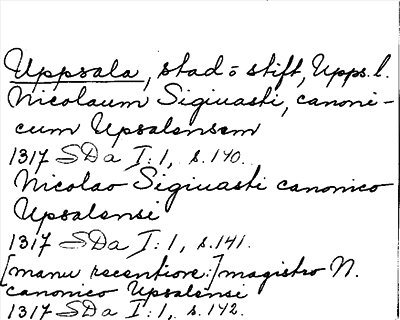 Uppsala, stad o stift, Upps. l.
Nicolaum Sigiuasti, canoni-
cum Upsalensem
1317 SDa I:1, s. 140.
Nicolao Sigiuasti canonico
Upsalensi
1317 SDa I:1, s. 141.
[manu recentiore:] magistro N.
canonico Upsalensi
1317 SDa I:1, s. 142.